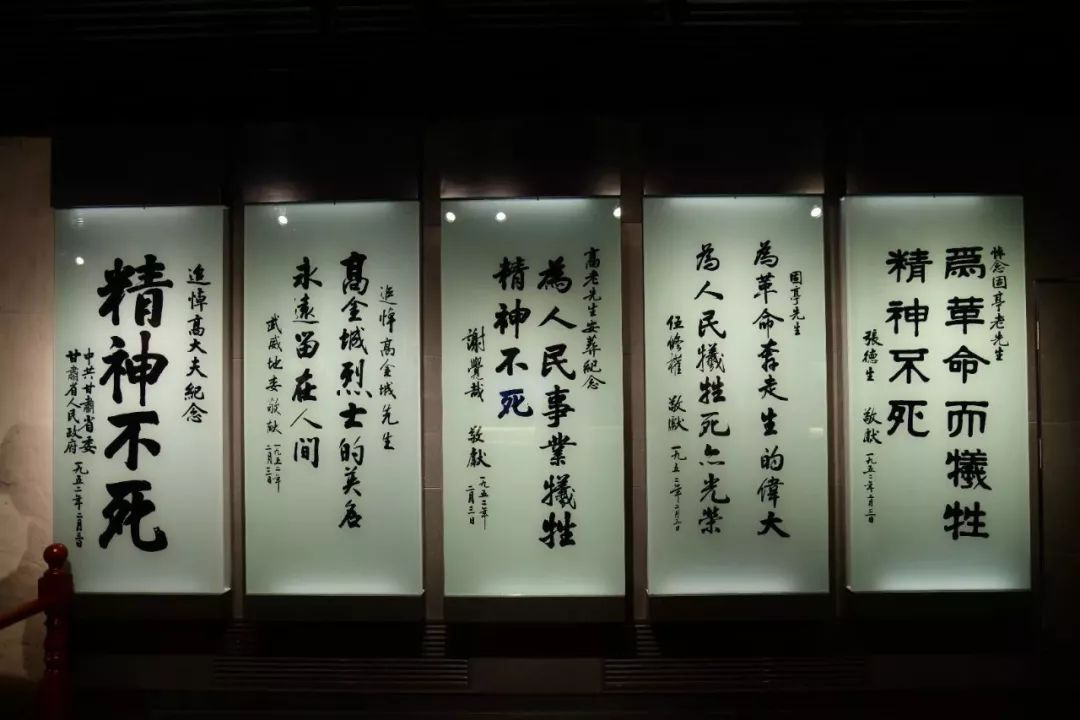 怀念固亭老先生
爲革命而犧牲
精神不死
張德生 敬獻 一九五二年二月三日
固亭先生
為革命奔走生的偉大
為人民犧牲死亦光榮
伍修權 敬獻 一九五二年二月三日
高老先生安葬紀念
為人民事業犧牲
精神不死
謝覺哉 敬獻 一九五二年
二月三日
追悼高金城先生
高金城烈士的英名
永遠留在人间
武威地委敬献 一九五二年
二月三日
追悼高大夫紀念
精神不死
中共甘肅省委
甘肅省人民政府 一九五二年二月三日